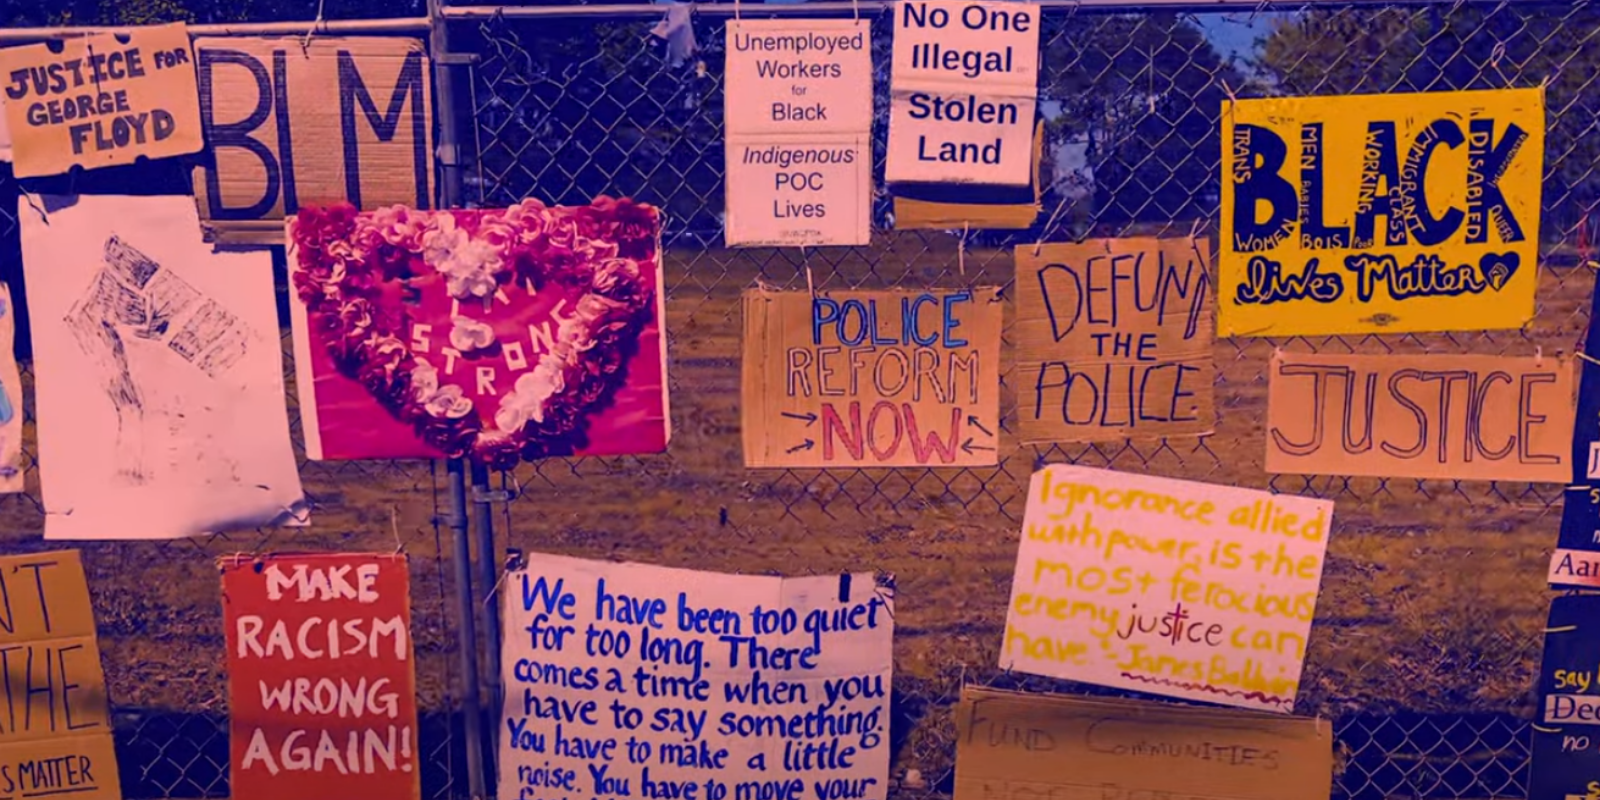 JUSTICE FOR
GEORGE
FLOYD
BLM
Unemployed
Workers
for
Black
Indigenous
POC
Lives
No One
Illegal
Stolen
Land
BLACK
TRANS
MEN
BABIES
WORKING
CLASS
IMMIGRANT
DISABLED
QUEER
WOMEN
BOIS
POOR
lives Matter
STRONG
POLICE
REFORM
NOW
DEFUND
THE
POLICE
JUSTICE
N'T
THE
S MATTER
MAKE
RACISM
WRONG
AGAIN!
We have been too quiet
for too long. There
comes a time when you
have to say something.
You have to make a little
noise. You have to move your
Ignorance allied
with power, is the
most ferocious
enemy justice can
have." -James Baldwin
FUND COMMUNITIES
J
Aar
say
Dec
no